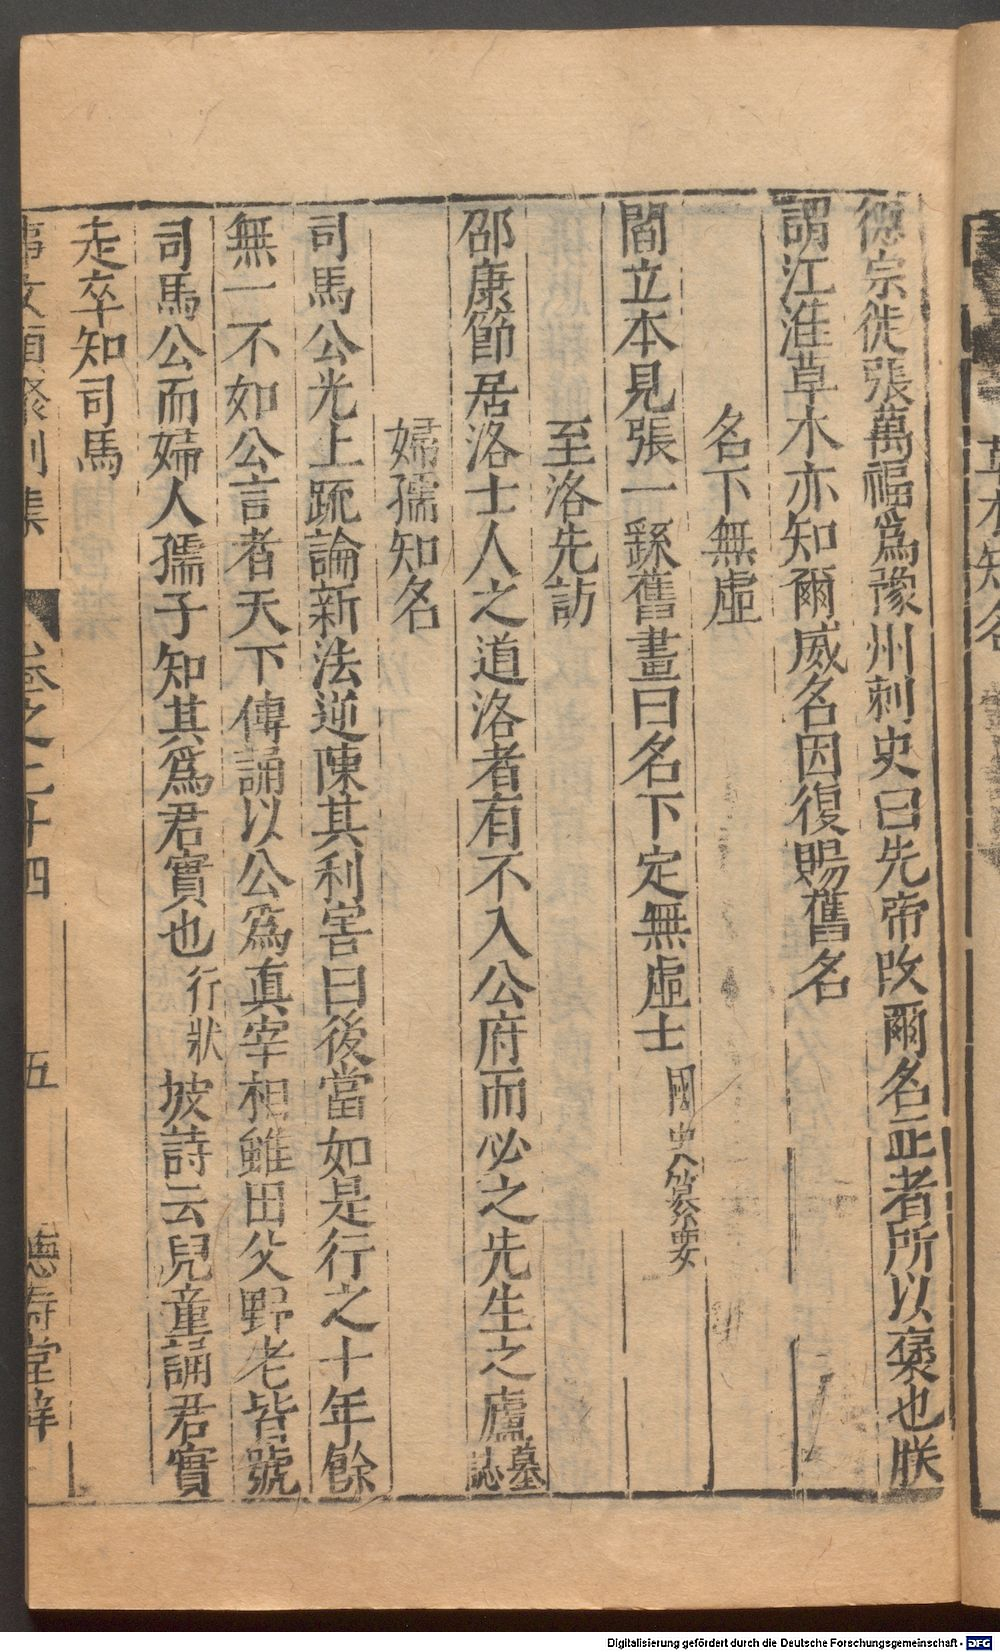 德宗徙張萬福爲豫州刺史曰先帝改爾名正者所以褒也朕
謂江淮草木亦知爾威名因復賜舊名
名下無虛
閻立本見張一繇舊畫曰名下定無虛士國史纂要
至洛先訪
邵康節居洛士人之道洛者有不入公府而必之先生之廬墓誌
婦孺知名
司馬公光上疏論新法逆陳其利害曰後當如是行之十年餘
無一不如公言者天下傳誦以公爲真宰相雖田父野老皆號
司馬公而婦人孺子知其爲君實也行狀坡詩云兒童誦君實
走卒知司馬
事文類聚別集 卷之二十四 五 德壽堂梓
草木知名
Digitalisierung gefördert durch die Deutsche Forschungsgemeinschaft - DFG